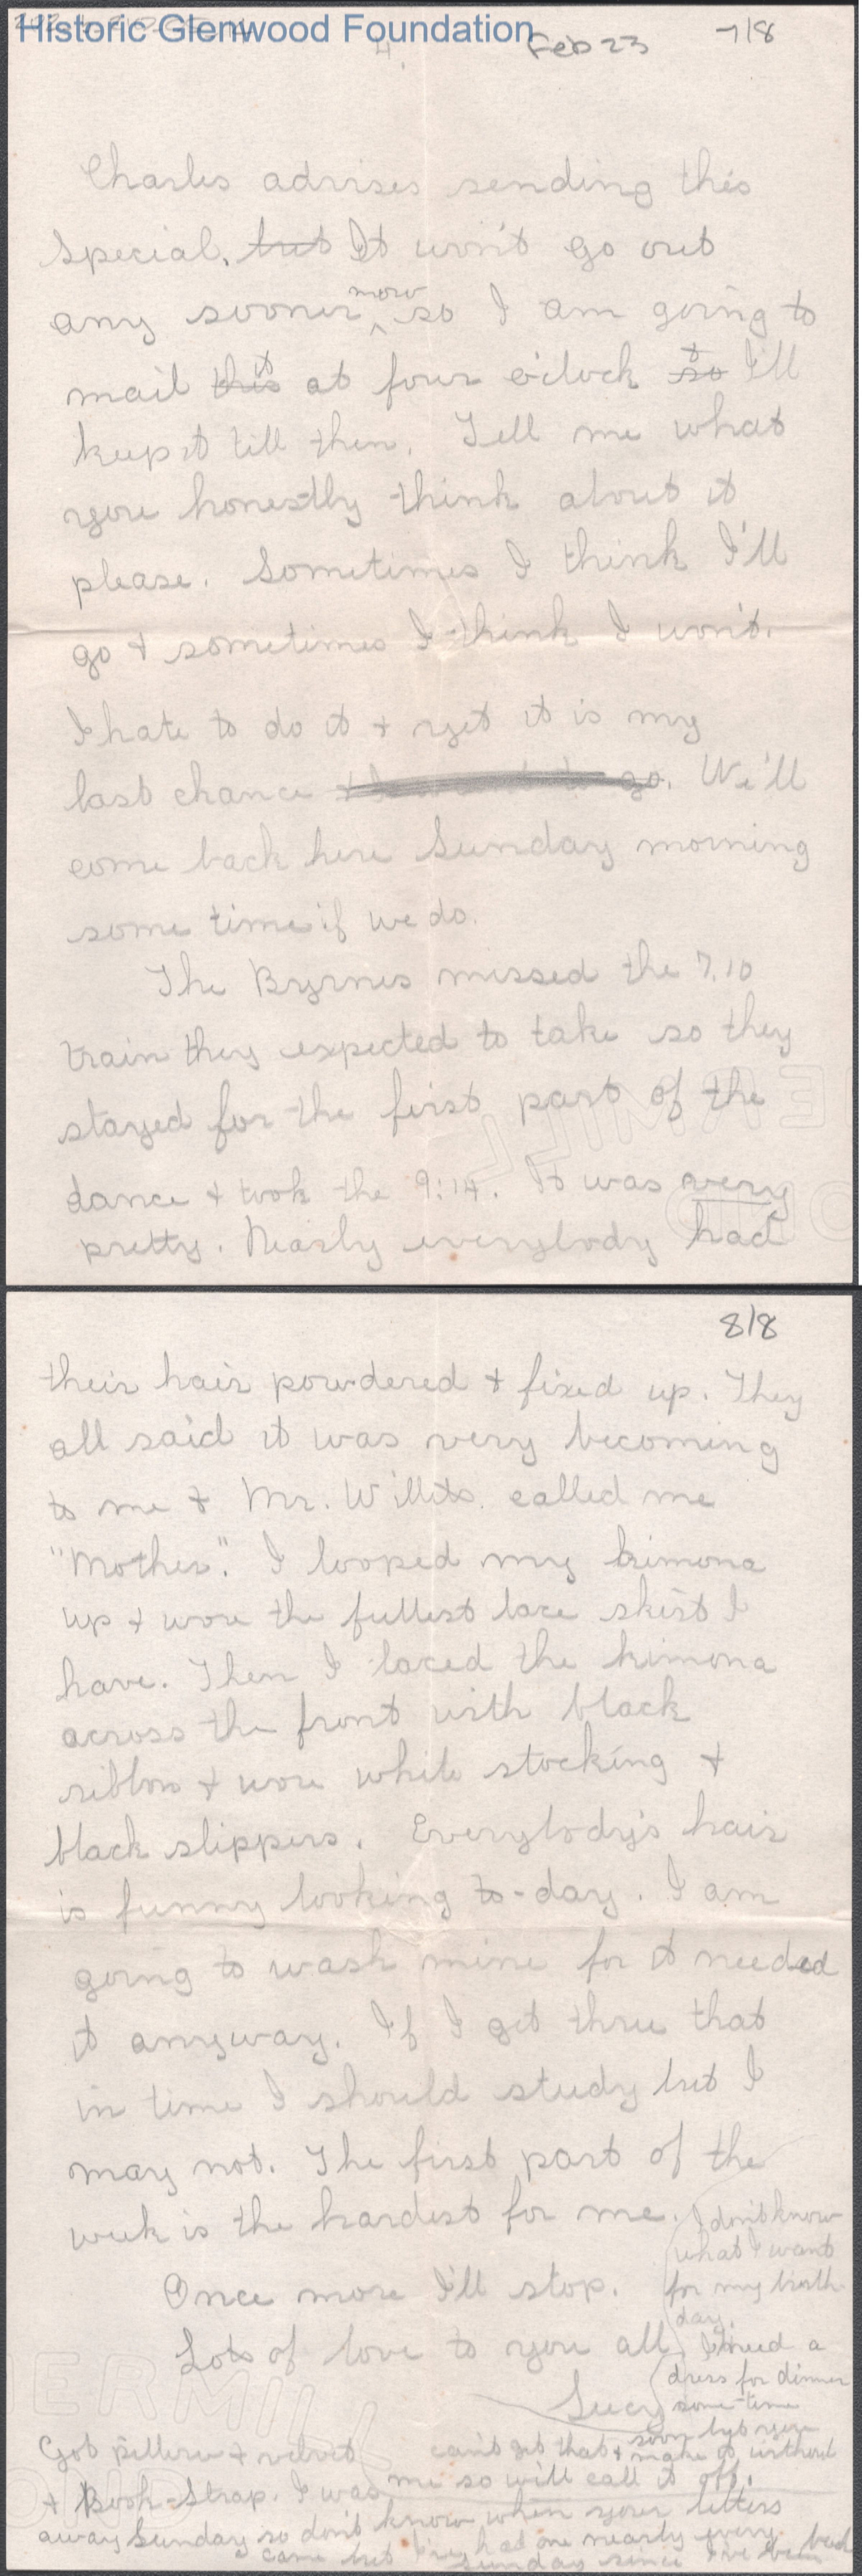 Historic Glenwood Foundation
4.
Feb 23
7/8
Charles advises sending this
special, but It won't go out
any sooner now so I am going to
mail this it at four o'clock so & I'll
keep it till then. Tell me what
you honestly think about it
please. Sometimes I think I'll
go + sometimes I think I won't.
I hate to do it + yet it is my
last chance go. We'll
come back here Sunday morning
some time if we do.
The Byrnes missed the 7.10
train they expected to take so they
stayed for the first part of the
dance + took the 9:14. It was very
pretty. Nearly everybody had
8/8
their hair powdered + fixed up. They
all said it was very becoming
to me + Mr. Willits. called me
"Mother". I looped my kimona
up + wore the fullest lace skirt I
have. Then I laced the kimona
across the front with black
ribbon + wore white stocking +
black slippers. Everybody's hair
is funny looking to-day. I am
going to wash mine for it needed
it anyway. If I get thru that
in time I should study but I
may not. The first part of the
week is the hardest for me.
Once more I'll stop.
Lots of love to you all
Lucy
I don't know
what I want
for my birth-
day.
I need a
dress for dinner
some-time
soon but you
can't get that + make it without
me so will call it off.
Got pillow + velvet
+ Book-Strap. I was
away Sunday so don't know when your letters
came but I've had one nearly every
Sunday since I've been back